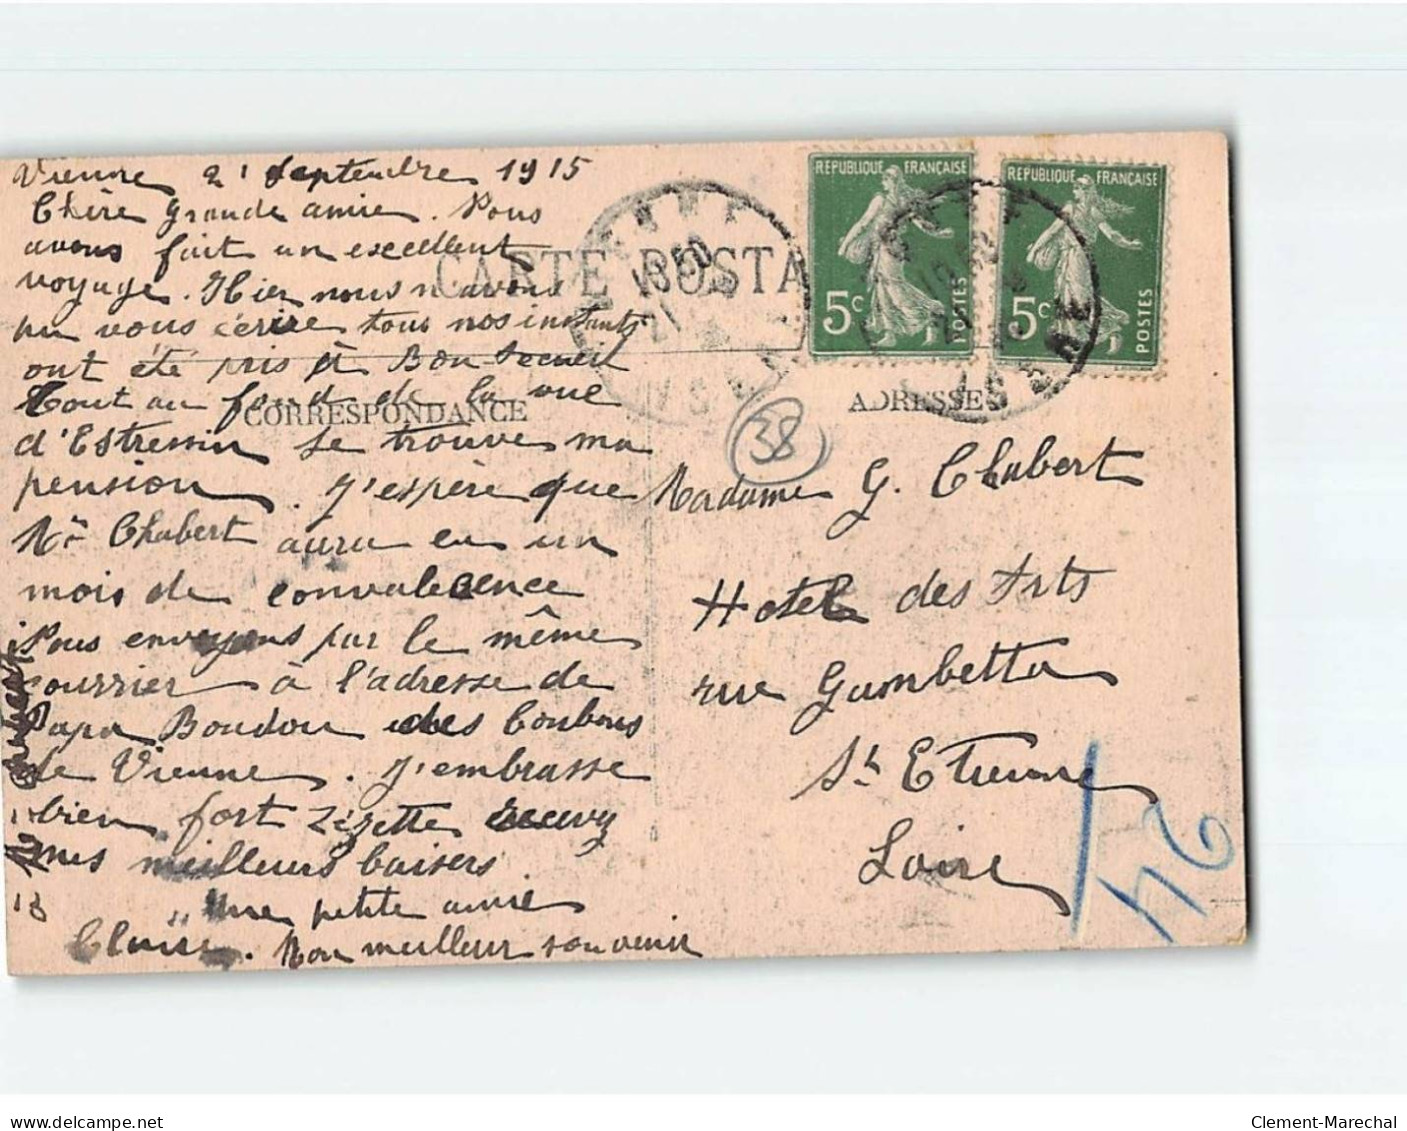 Vienne 21 Septembre 1915
Chère grande amie. Nous
avons fait un excellent
voyage. Hier nous n'avons
pu vous écrire tous nos instants
ont été pris à Bon Secour
Tout au fond de la vue
d'Estressin se trouve ma
pension. J'espère que
Mr Chabert aura eu un
mois de convalecence
Nous envoyons par le même
courrier à l'adresse de
Papa Boudou des bonbons
de Vienne. J'embrasse
bien fort Zizette
mes meilleurs baisers
Une petite amie
Claire. Mon meilleur souvenir
CARTE POSTA
CORRESPONDANCE
RÉPUBLIQUE FRANÇAISE
5c
POSTES
RÉPUBLIQUE FRANÇAISE
5c
POSTES
ADRESSE
38
Madame G. Chabert
Hotel des Arts
rue Gambetta
St Etienne
Loire
delcampe.net
Clement-Marechal